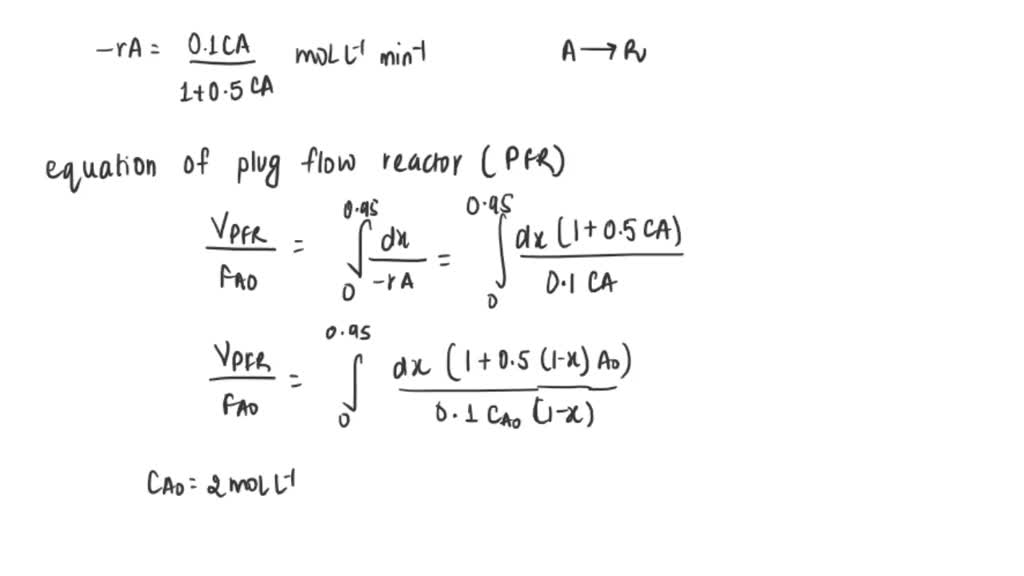 -rA = 0.1CA / 1+0.5 CA mol L⁻¹ min⁻¹ A → R
equation of plug flow reactor (PFR)
VPFR / FAO = ∫₀^0.95 dx / -rA = ∫₀^0.95 dx (1+0.5 CA) / 0.1 CA
VPFR / FAO = ∫₀^0.95 dx (1+0.5 (1-x) A₀) / 0.1 CAO (1-x)
CAO = 2 mol L⁻¹